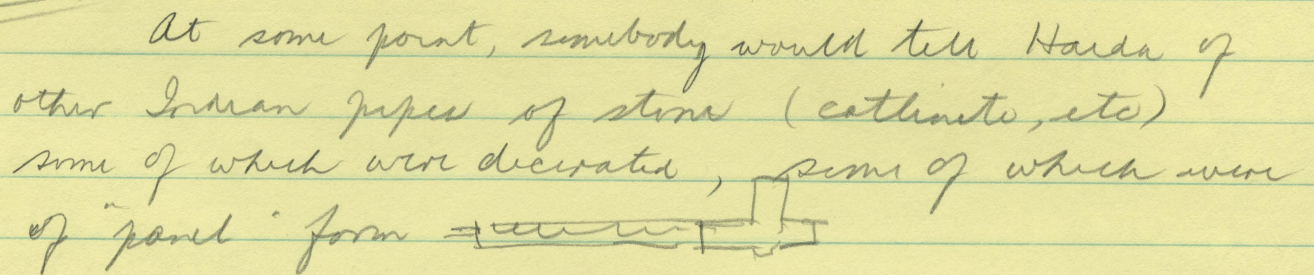 At some point, somebody would tell Haida of
other Indian pipes of stone (catlinite, etc)
some of which were decorated, some of which were
of "panel" form